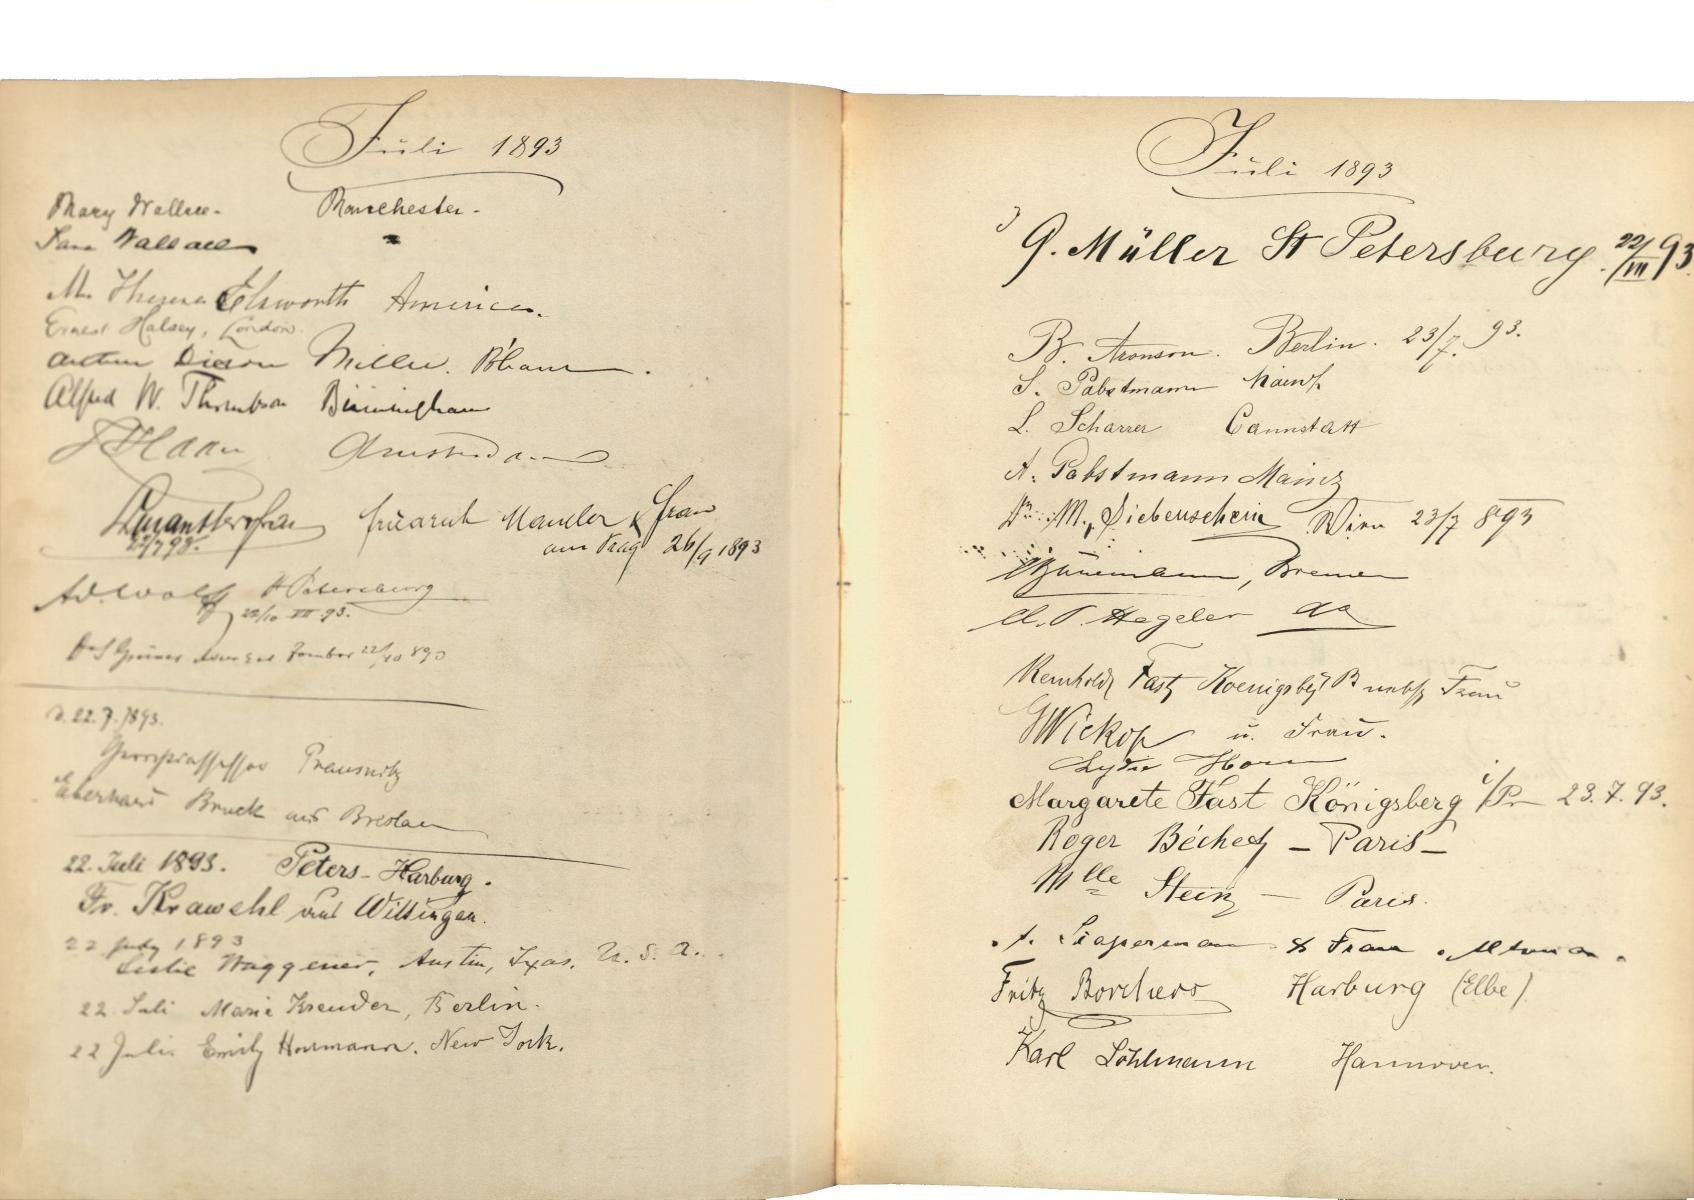 Juli 1893
Mary Wallace. Manchester.
Sara Wallace "
Elsworth America.
Ernest Halsey, London.
Arthur Dixon Miller. B'ham.
Alfred W. Thornton Birmingham
Haan Amsterdam
Friedrich Mandler & Frau
aus Prag 26/9 1893
22/7 93.
Ad. Wolff St Petersburg
22/10 VII 93.
Dr S Grüner 22/10 893
d. 22.7.1893.
Prausnitz
Eberhard Bruck aus Breslau
22. Juli 1893. Peters - Harburg.
Fr. Krawehl und Wittingen.
22 July 1893
Leslie Waggener, Austin, Texas. U.S.A.
22 Juli Marie Kreuder, Berlin.
22 Juli. Emily Hormann. New York.
Juli 1893
G. Müller St Petersburg. 22/VII 93
B. Aronson. Berlin. 23/7. 93.
S. Pabstmann Mainz
L. Scharrer Cannstatt
A. Pabstmann Mainz
Dr. M. Siebenschein Wien 23/7 893
Bünemann, Bremen
A. P. Hegeler do
Reinholdt Fast Koenigsbg Pr nebst Frau
G Wickop u. Frau.
Lydie Horn
Margarete Fast Königsberg i/Pr 23.7.93.
Roger Béchet - Paris -
Mlle Stein - Paris.
A. Siapermann & Frau. Altona.
Fritz Borchers Harburg (Elbe).
Karl Löhlmann Hannover.